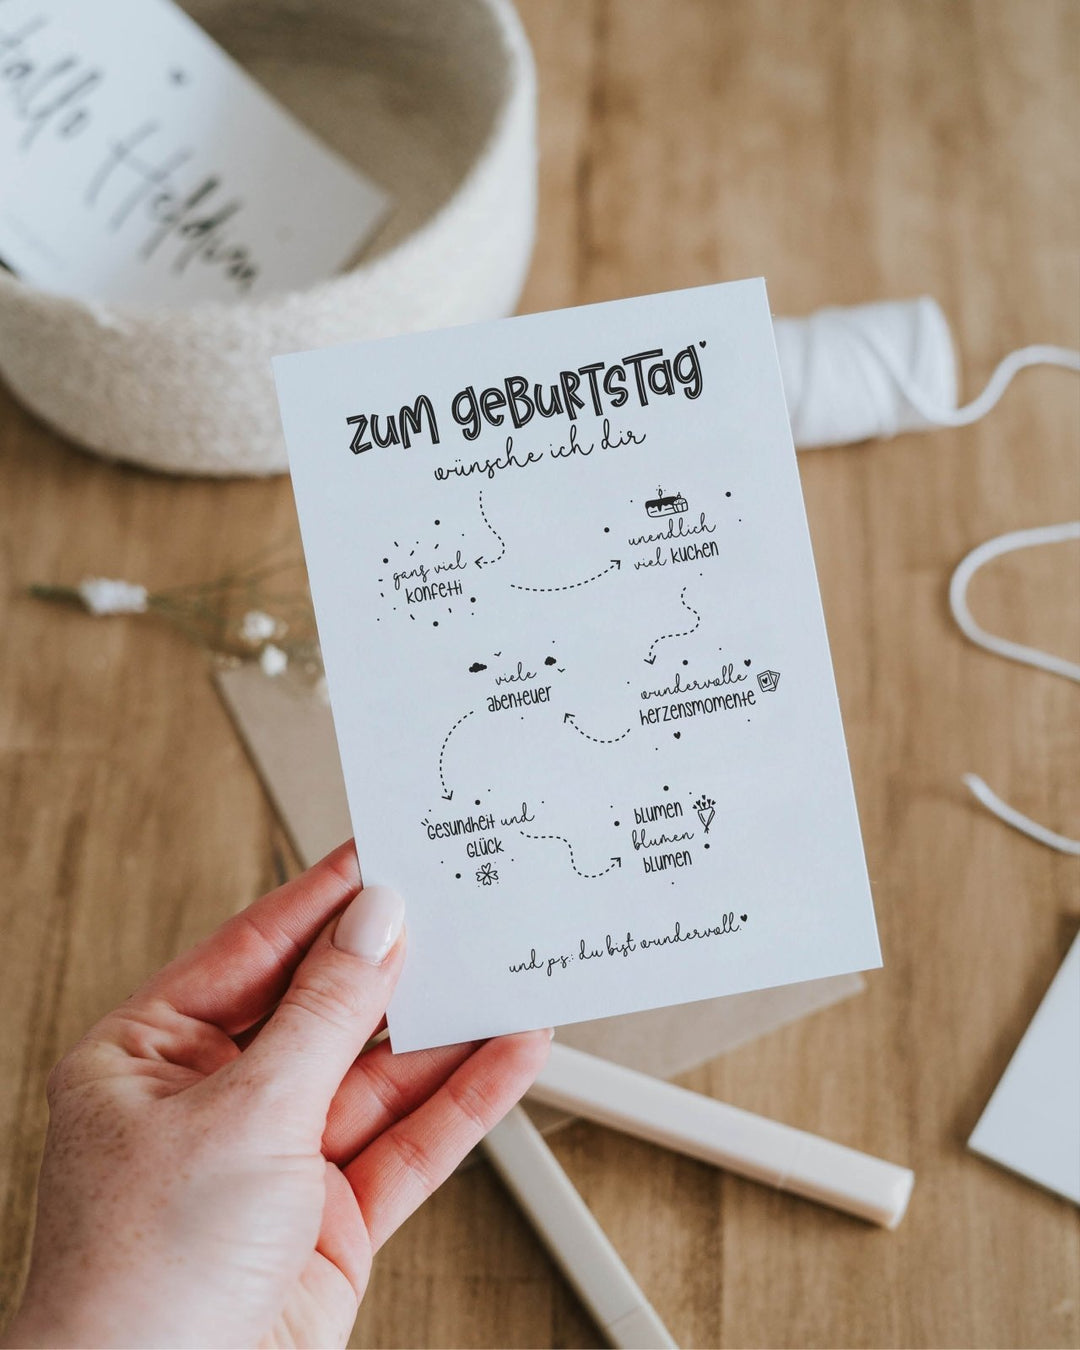 Hallo
zum Geburtstag
wünsche ich dir
ganz viel
Konfetti
unendlich
viel Kuchen
wundervolle
Herzensmomente
viele
Abenteuer
Gesundheit und
Glück
Blumen
blumen
Blumen
und ps.: du bist wundervoll.